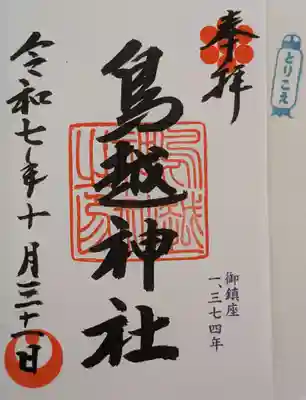 奉拝
とりこえ
鳥越神社
御鎮座
一、三七四年
令和七年十月三十一日